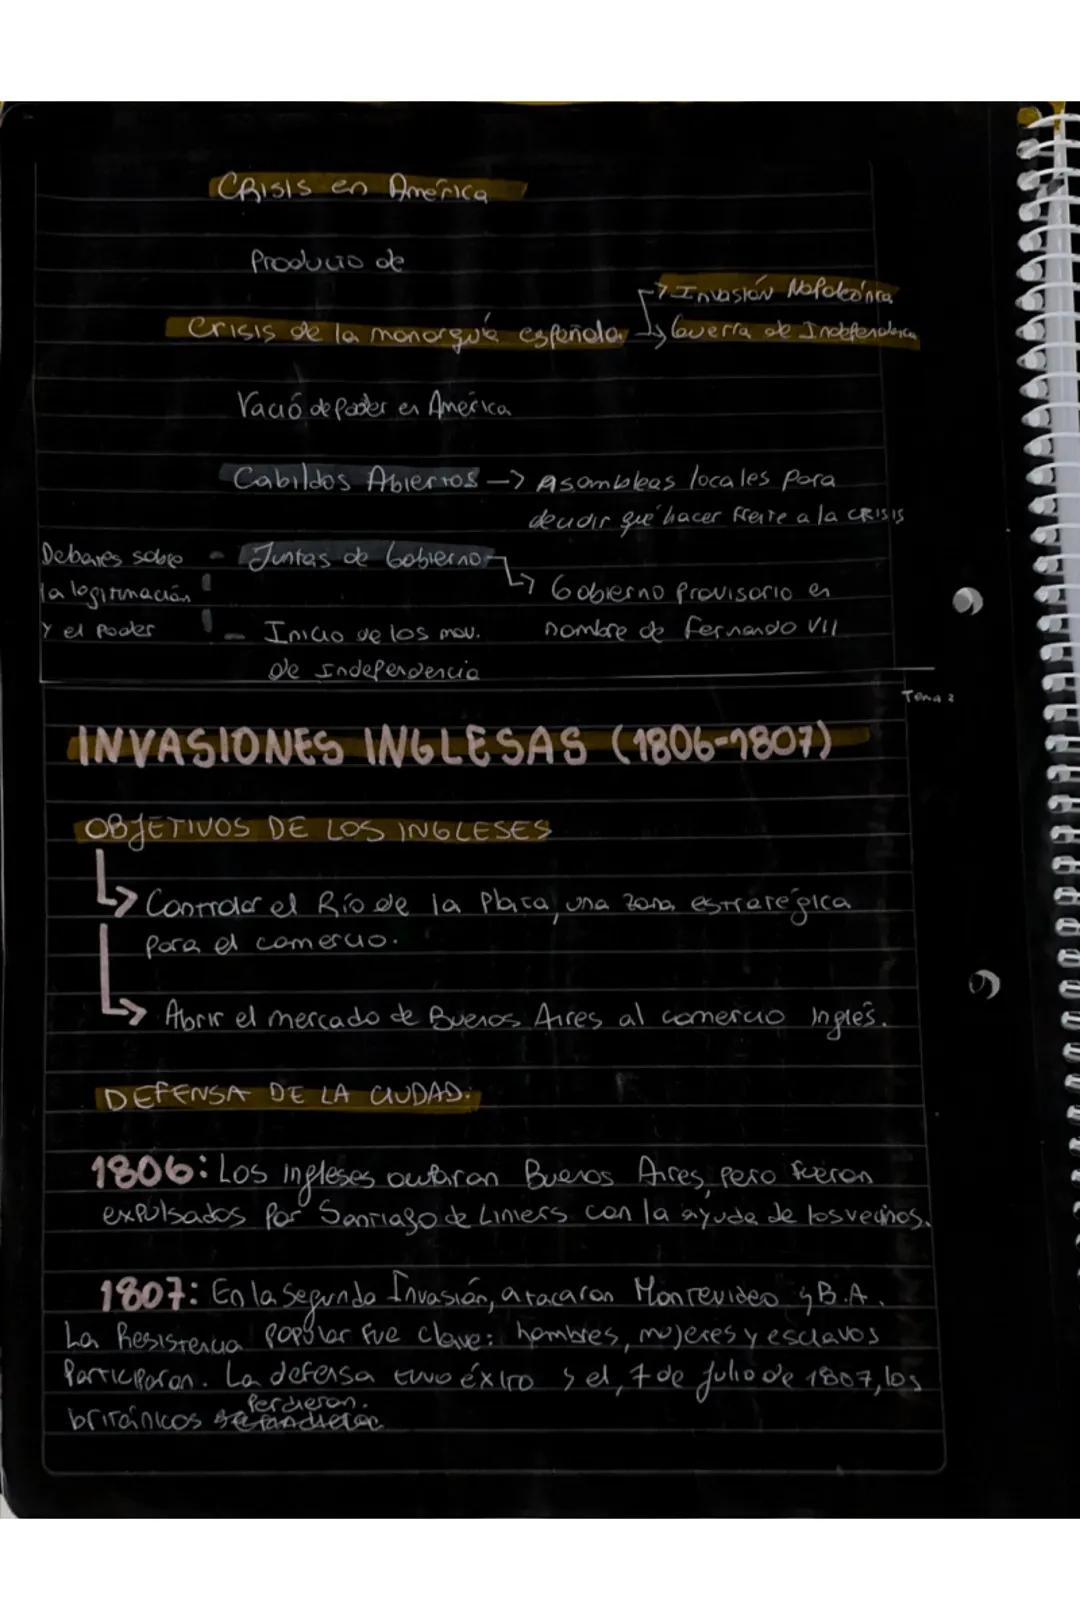 Crisis en América
Producto de
→ Invasión Napoleónica
Crisis de la monarquía española → Guerra de Independencia
Vació de poder en América
Cabildos Abiertos → Asambleas locales para
decidir qué hacer frente a la crisis
Debates sobre - Juntas de Gobierno
la legitimación → Gobierno Provisorio en
y el poder - Inicio de los mov. nombre de Fernando VII
de Independencia
Tema 2
INVASIONES INGLESAS (1806-1807)
OBJETIVOS DE LOS INGLESES
→ Controlar el Río de la Plata, una zona estratégica
para el comercio.
→ Abrir el mercado de Buenos Aires al comercio inglés.
DEFENSA DE LA CIUDAD:
1806: Los ingleses ocuparon Buenos Aires, pero fueron
expulsados por Santiago de Liniers con la ayuda de los vecinos.
1807: En la Segunda Invasión, atacaron Montevideo y B.A.
La Resistencia popular fue clave: hombres, mujeres y esclavos
participaron. La defensa tuvo éxito y el, 7 de julio de 1807, los
perdieron.
británicos